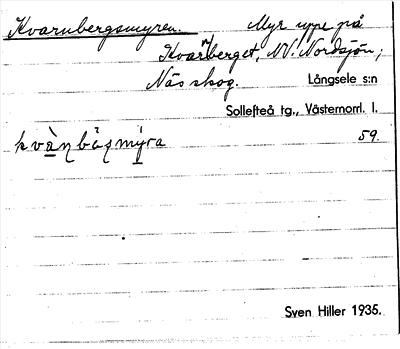 Kvarnbergsmyren. Myr uppe på
Kvarnberget, NV. Nordsjön;
Näs skog. Långsele s:n
Sollefteå tg., Västernorrl. l.
kvä̀ṇbä́ṣmýra 59.
Sven Hiller 1935.